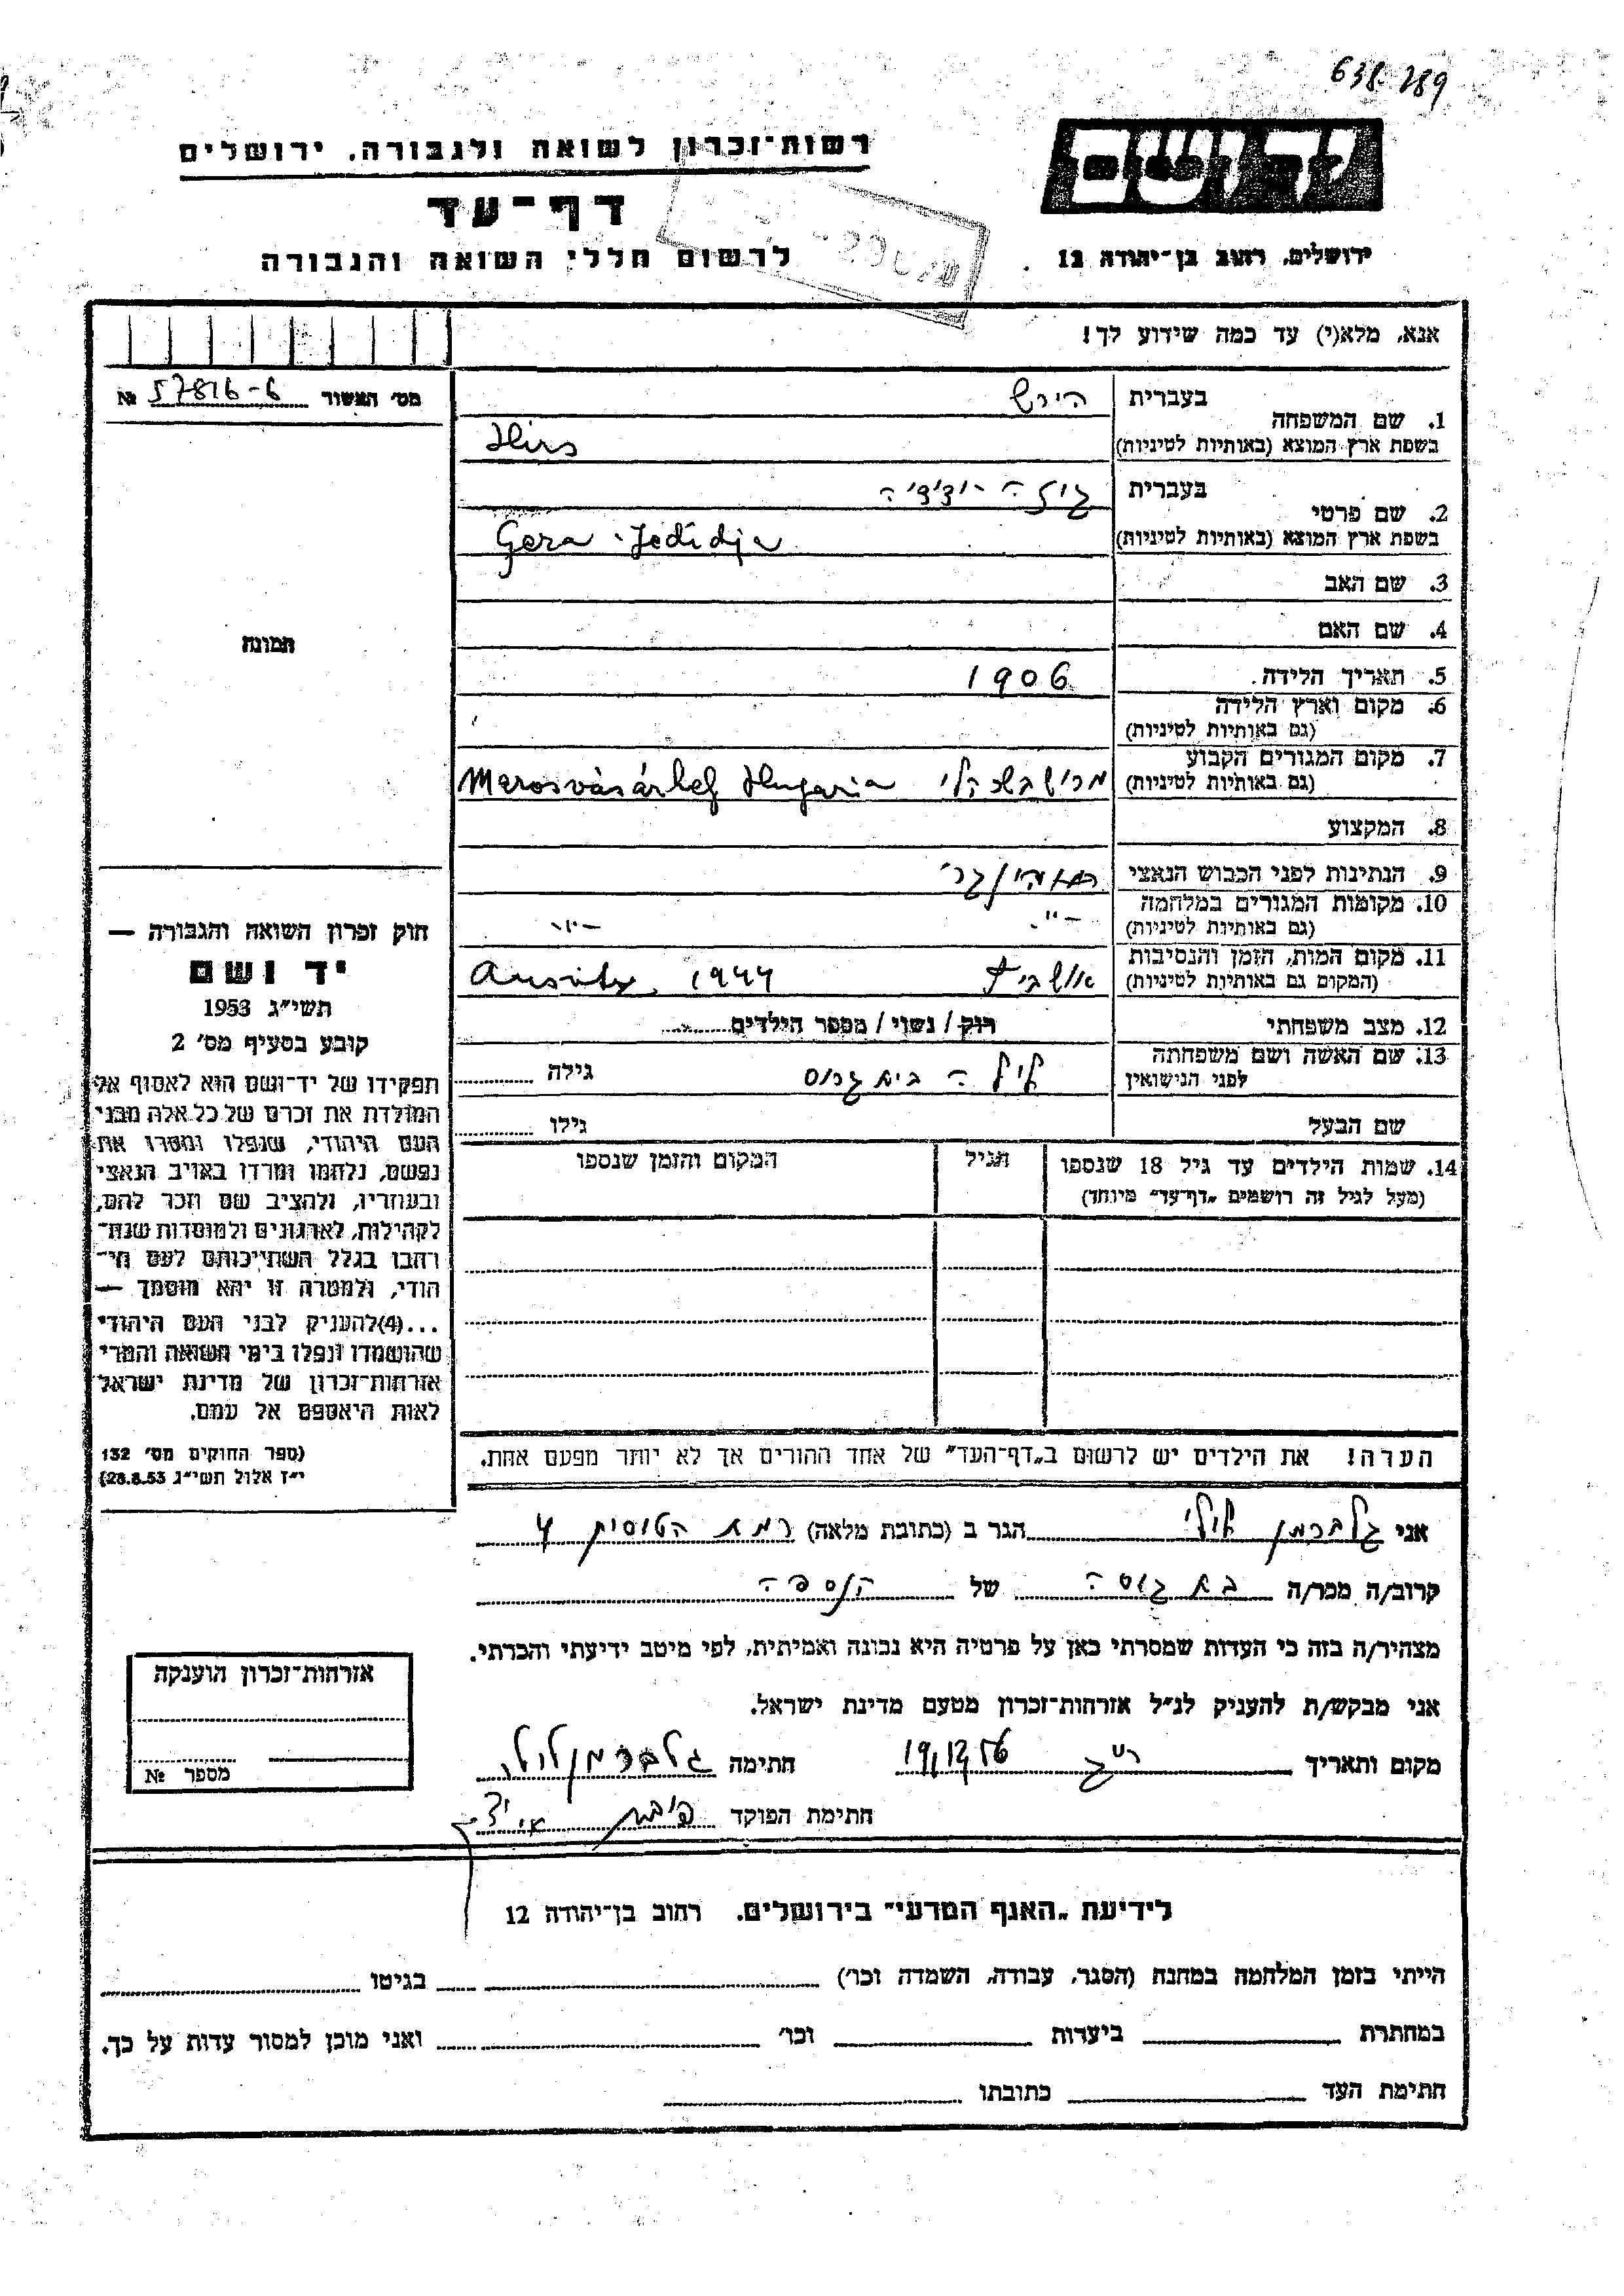 638.289
רשות־זכרון לשואה ולגבורה, ירושלים
יד ושם
דף־עד
לרשום חללי השואה והגבורה
ירושלים, רחוב בן־יהודה 12
אנא, מלא(י) עד כמה שידוע לך!
מס׳ האשור № 57816-6
1. שם המשפחה
בעברית הירש
בשפת ארץ המוצא (באותיות לטיניות) Hirs
2. שם פרטי
בעברית גיזה - ידידיה
בשפת ארץ המוצא (באותיות לטיניות) Geza - Jedidja
3. שם האב
4. שם האם
תמונה
5. תאריך הלידה. 1906
6. מקום וארץ הלידה
(גם באותיות לטיניות)
7. מקום המגורים הקבוע
(גם באותיות לטיניות) Marosvásárhej Hungaria
8. המקצוע
9. הנתינות לפני הכבוש הנאצי
10. מקומות המגורים במלחמה
(גם באותיות לטיניות) -"- -"-
11. מקום המות, הזמן והנסיבות
(המקום גם באותיות לטיניות) אושביץ Ausvitz, 1944
12. מצב משפחתי רוק / נשוי / מספר הילדים
13. שם האשה ושם משפחתה
לפני הנישואין בית גרוס גילה
שם הבעל גילו
14. שמות הילדים עד גיל 18 שנספו
(מעל לגיל זה רושמים „דף־עד״ מיוחד)
הגיל
המקום והזמן שנספו
חוק זכרון השואה והגבורה —
יד ושם
תשי״ג 1953
קובע בסעיף מס׳ 2
תפקידו של יד־ושם הוא לאסוף אל
המולדת את זכרם של כל אלה מבני
העם היהודי, שנפלו ומסרו את
נפשם, נלחמו ומרדו באויב הנאצי
ובעוזריו, ולהציב שם וזכר להם,
לקהילות, לארגונים ולמוסדות שנח־
רבו בגלל השתייכותם לעם הי־
הודי, ולמטרה זו יהא מוסמך —
...(4)להעניק לבני העם היהודי
שהושמדו ונפלו בימי השואה והמרי
אזרחות־זכרון של מדינת ישראל
לאות היאספם אל עמם.
(ספר החוקים מס׳ 132
י״ז אלול תשי״ג 28.8.53)
הערה! את הילדים יש לרשום ב„דף־העד״ של אחד ההורים אך לא יותר מפעם אחת.
אני גלברמן הגר ב (כתובת מלאה) רמת 4
קרוב/ה מכר/ה בת דודה של הנספה
מצהיר/ה בזה כי העדות שמסרתי כאן על פרטיה היא נכונה ואמיתית, לפי מיטב ידיעתי והכרתי.
אני מבקש/ת להעניק לנ״ל אזרחות־זכרון מטעם מדינת ישראל.
מקום ותאריך ר״ג 19/12/56 חתימה גלברמן
חתימת הפוקד
אזרחות־זכרון הוענקה
מספר №
לידיעת „האגף המדעי״ בירושלים. רחוב בן־יהודה 12
הייתי בזמן המלחמה במחנה (הסגר, עבודה, השמדה וכו׳) בגיטו
במחתרת ביערות וכו׳ ואני מוכן למסור עדות על כך.
חתימת העד כתובתו